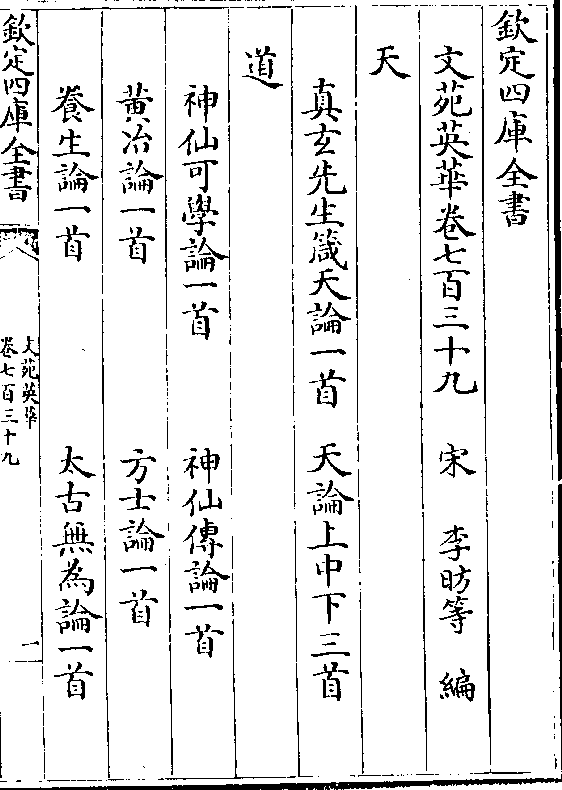 欽定四庫全書
文苑英華卷七百三十九 宋 李昉等 編
天
真玄先生箴天論一首 天論上中下三首
道
神仙可學論一首 神仙傳論一首
黃冶論一首 方士論一首
養生論一首 太古無為論一首
欽定四庫全書
文苑英華
卷七百三十九
一